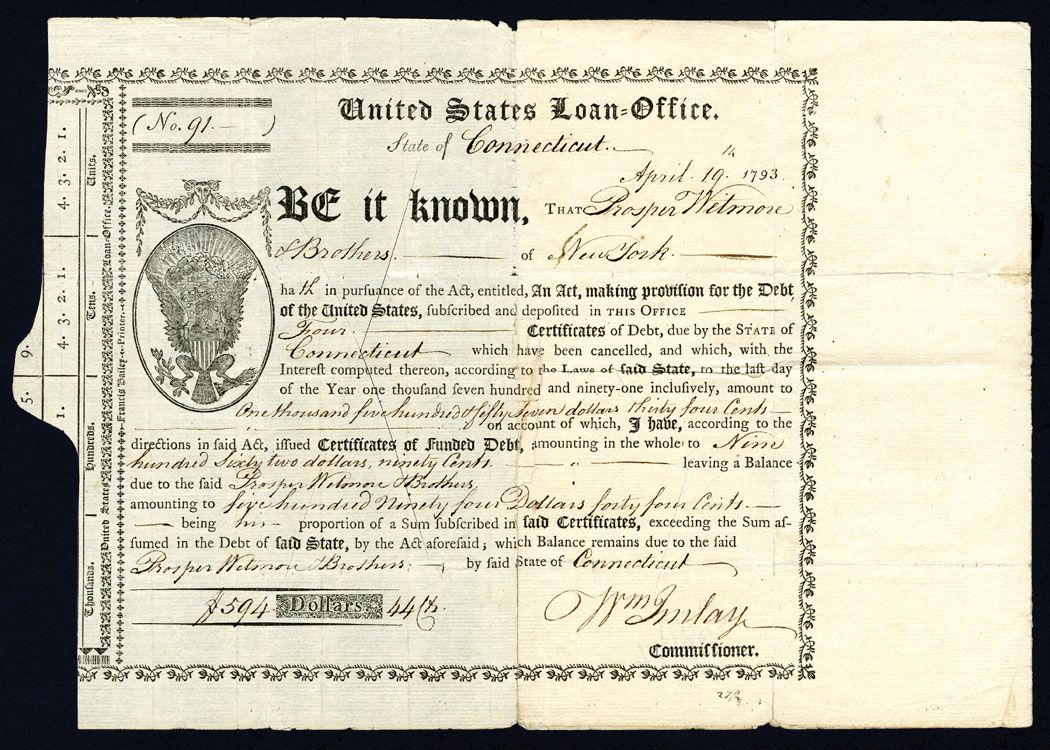 (No. 91.— )
United States Loan=Office.
State of Connecticut.
April 19th 1793.
BE it known, THAT Prosper Wetmore
& Brothers. of New York.
hath in pursuance of the Act, entitled, An Act, making provision for the Debt
of the United States, subscribed and deposited in THIS OFFICE
Four Certificates of Debt, due by the STATE of
Connecticut which have been cancelled, and which, with the
Interest computed thereon, according to the Laws of said State, to the last day
of the Year one thousand seven hundred and ninety-one inclusively, amount to
One thousand five hundred & fifty seven dollars thirty four Cents
on account of which, I have, according to the
directions in said Act, issued Certificates of Funded Debt, amounting in the whole to Nine
hundred Sixty two dollars, ninety Cents. leaving a Balance
due to the said Prosper Wetmore & Brothers
amounting to five hundred Ninety four Dollars forty four Cents.
being his proportion of a Sum subscribed in said Certificates, exceeding the Sum as-
sumed in the Debt of said State, by the Act aforesaid; which Balance remains due to the said
Prosper Wetmore & Brothers. by said State of Connecticut
$594 Dollars 44 Cts.
Wm Imlay
Commissioner.
Francis Bailey Printer
United States Loan-Office.
Thousands. Hundreds. Tens. Units.
5. 9. 1. 4. 3. 2. 1. 4. 3. 2. 1.